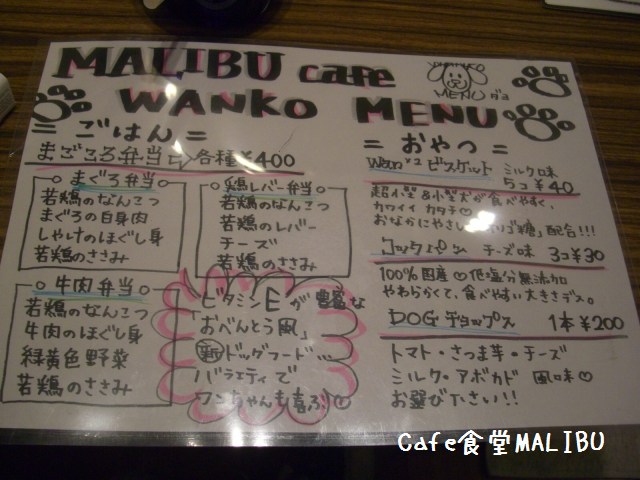 MALIBU cafe
WANKO MENU
WANKO
MENU ダヨ
= ごはん =
まごころ弁当 各種 ¥400
まぐろ弁当
若鶏のなんこつ
まぐろの白身肉
しゃけのほぐし身
若鶏のささみ
鶏レバー弁当
若鶏のなんこつ
若鶏のレバー
チーズ
若鶏のささみ
牛肉弁当
若鶏のなんこつ
牛肉のほぐし身
緑黄色野菜
若鶏のささみ
「ビタミンEが豊富な
「おべんとう風」
新ドッグフード…
バラエティで
ワンちゃんも喜ぶ!
= おやつ =
Wan×2 ビスケット ミルク味
5コ ¥40
超小型&小型犬が食べやすく、
カワイイ カタチ♡
おなかにやさしい オリゴ糖」配合!!!
コッペパン チーズ味 3コ ¥30
100%国産♡低塩分無添加
やわらかくて、食べやすい大きさデス。
DOGチョップス 1本 ¥200
トマト・さつま芋・チーズ
ミルク・アボカド 風味♡
お選び下さい!!
Cafe食堂MALIBU